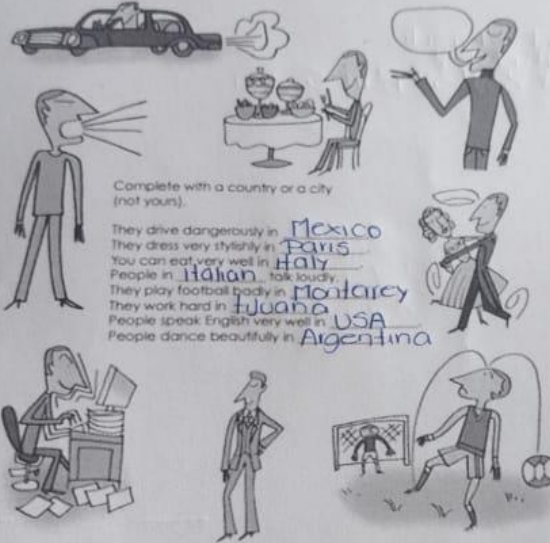 Complete with a country or a city
(not yours).
They drive dangerously in Mexico
They dress very stylishly in Paris
You can eat very well in Italy
People in Italian talk loudly.
They play football badly in Montarey
They work hard in tJuana
People speak English very well in USA
People dance beautifully in Argentina